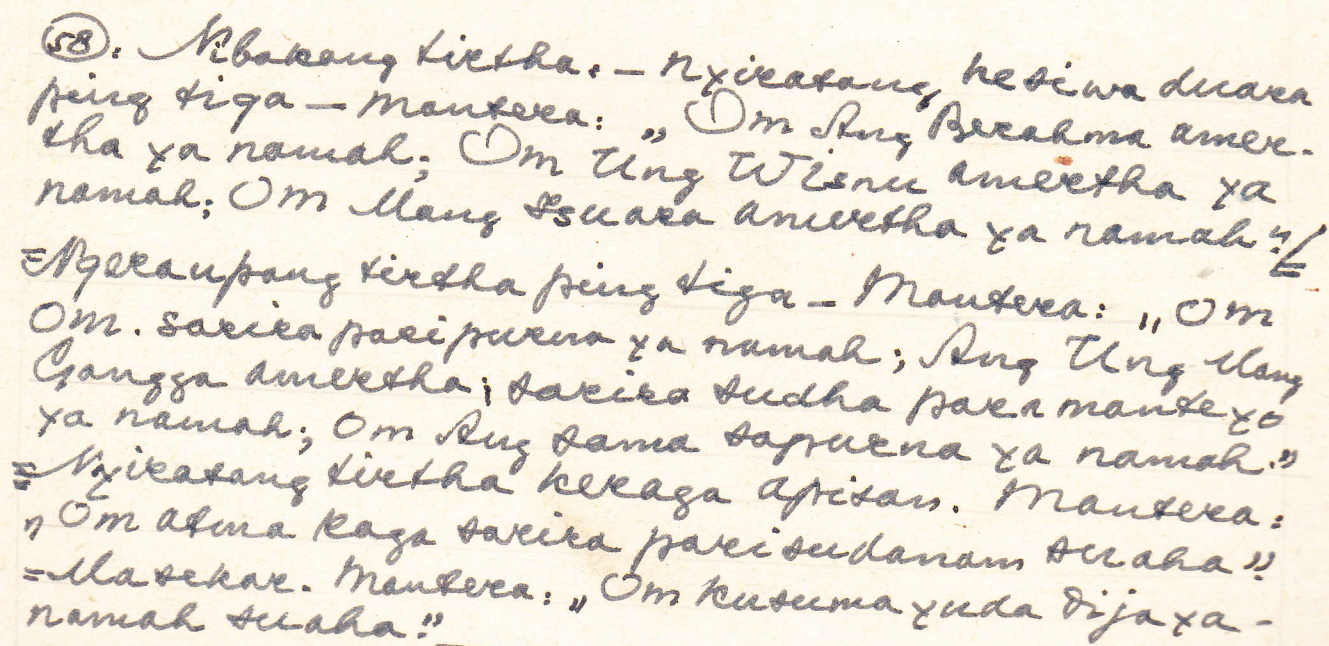 (58). Nibakang tirtha. – nyiratang, ke siwa duara
ping tiga – mantera: „Om Ang Berahma amer-
tha ya namah; Om Ung Wisnu amertha ya
namah; Om Mang Isuara amertha ya namah"/
=Ngeraupang tirtha ping tiga – Mantera: „Om
Om. sarira paripurna ya namah; Ang Ung Mang
Gangga amertha; sarira sudha paramanteyo
ya namah; Om Ang sama sapurna ya namah."
=Nyiratang tirtha keraga apisan. Mantera:
„Om atma raga sarira parisudanam suaha"
=Masekar. Mantera: „Om kusuma yuda dijaya-
namah suaha."